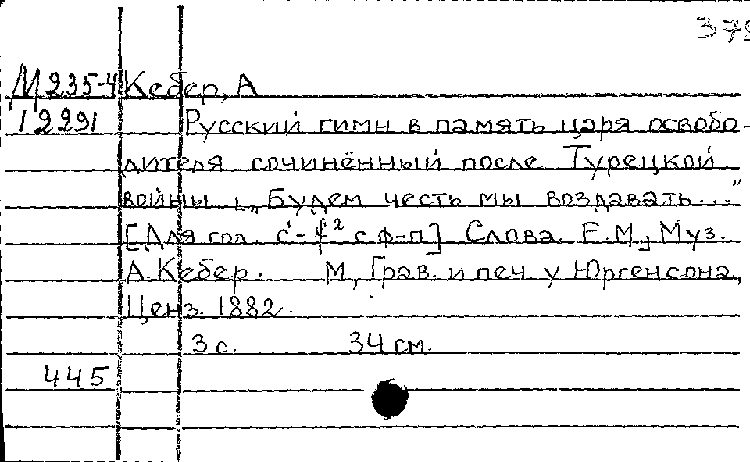 379
М 235-4 Кебер, А
12291 Русский гимн в память царя освобо-
дителя сочинённый после Турецкой
войны : „Будем честь мы воздавать..."
[Для гол. c¹-f² с ф-п] Слова Е.М., Муз.
А. Кебер. М., Грав. и печ. у Юргенсона,
Ценз. 1882.
3 с. 34 см.
445